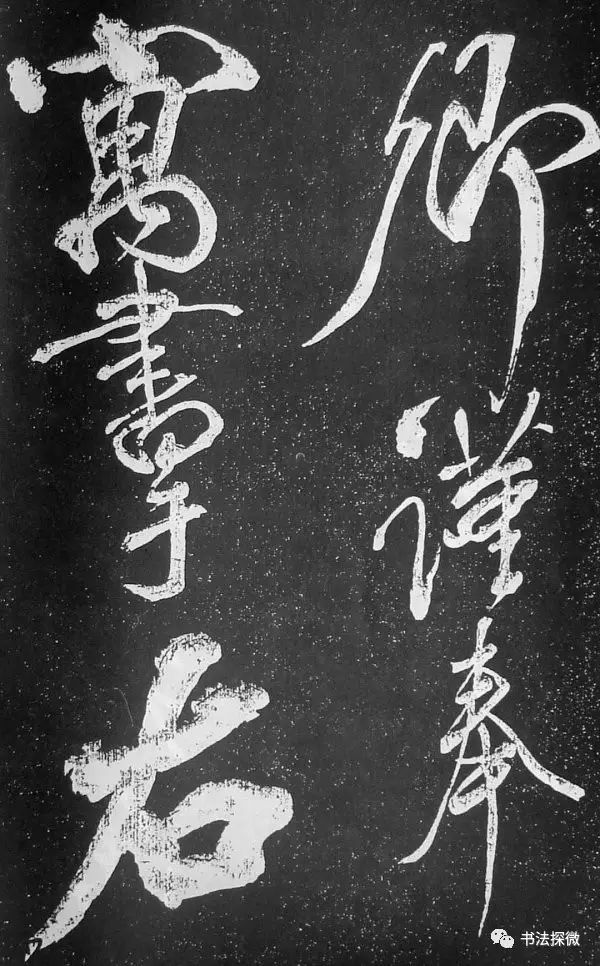 卿謹奉
寓書于右
书法探微